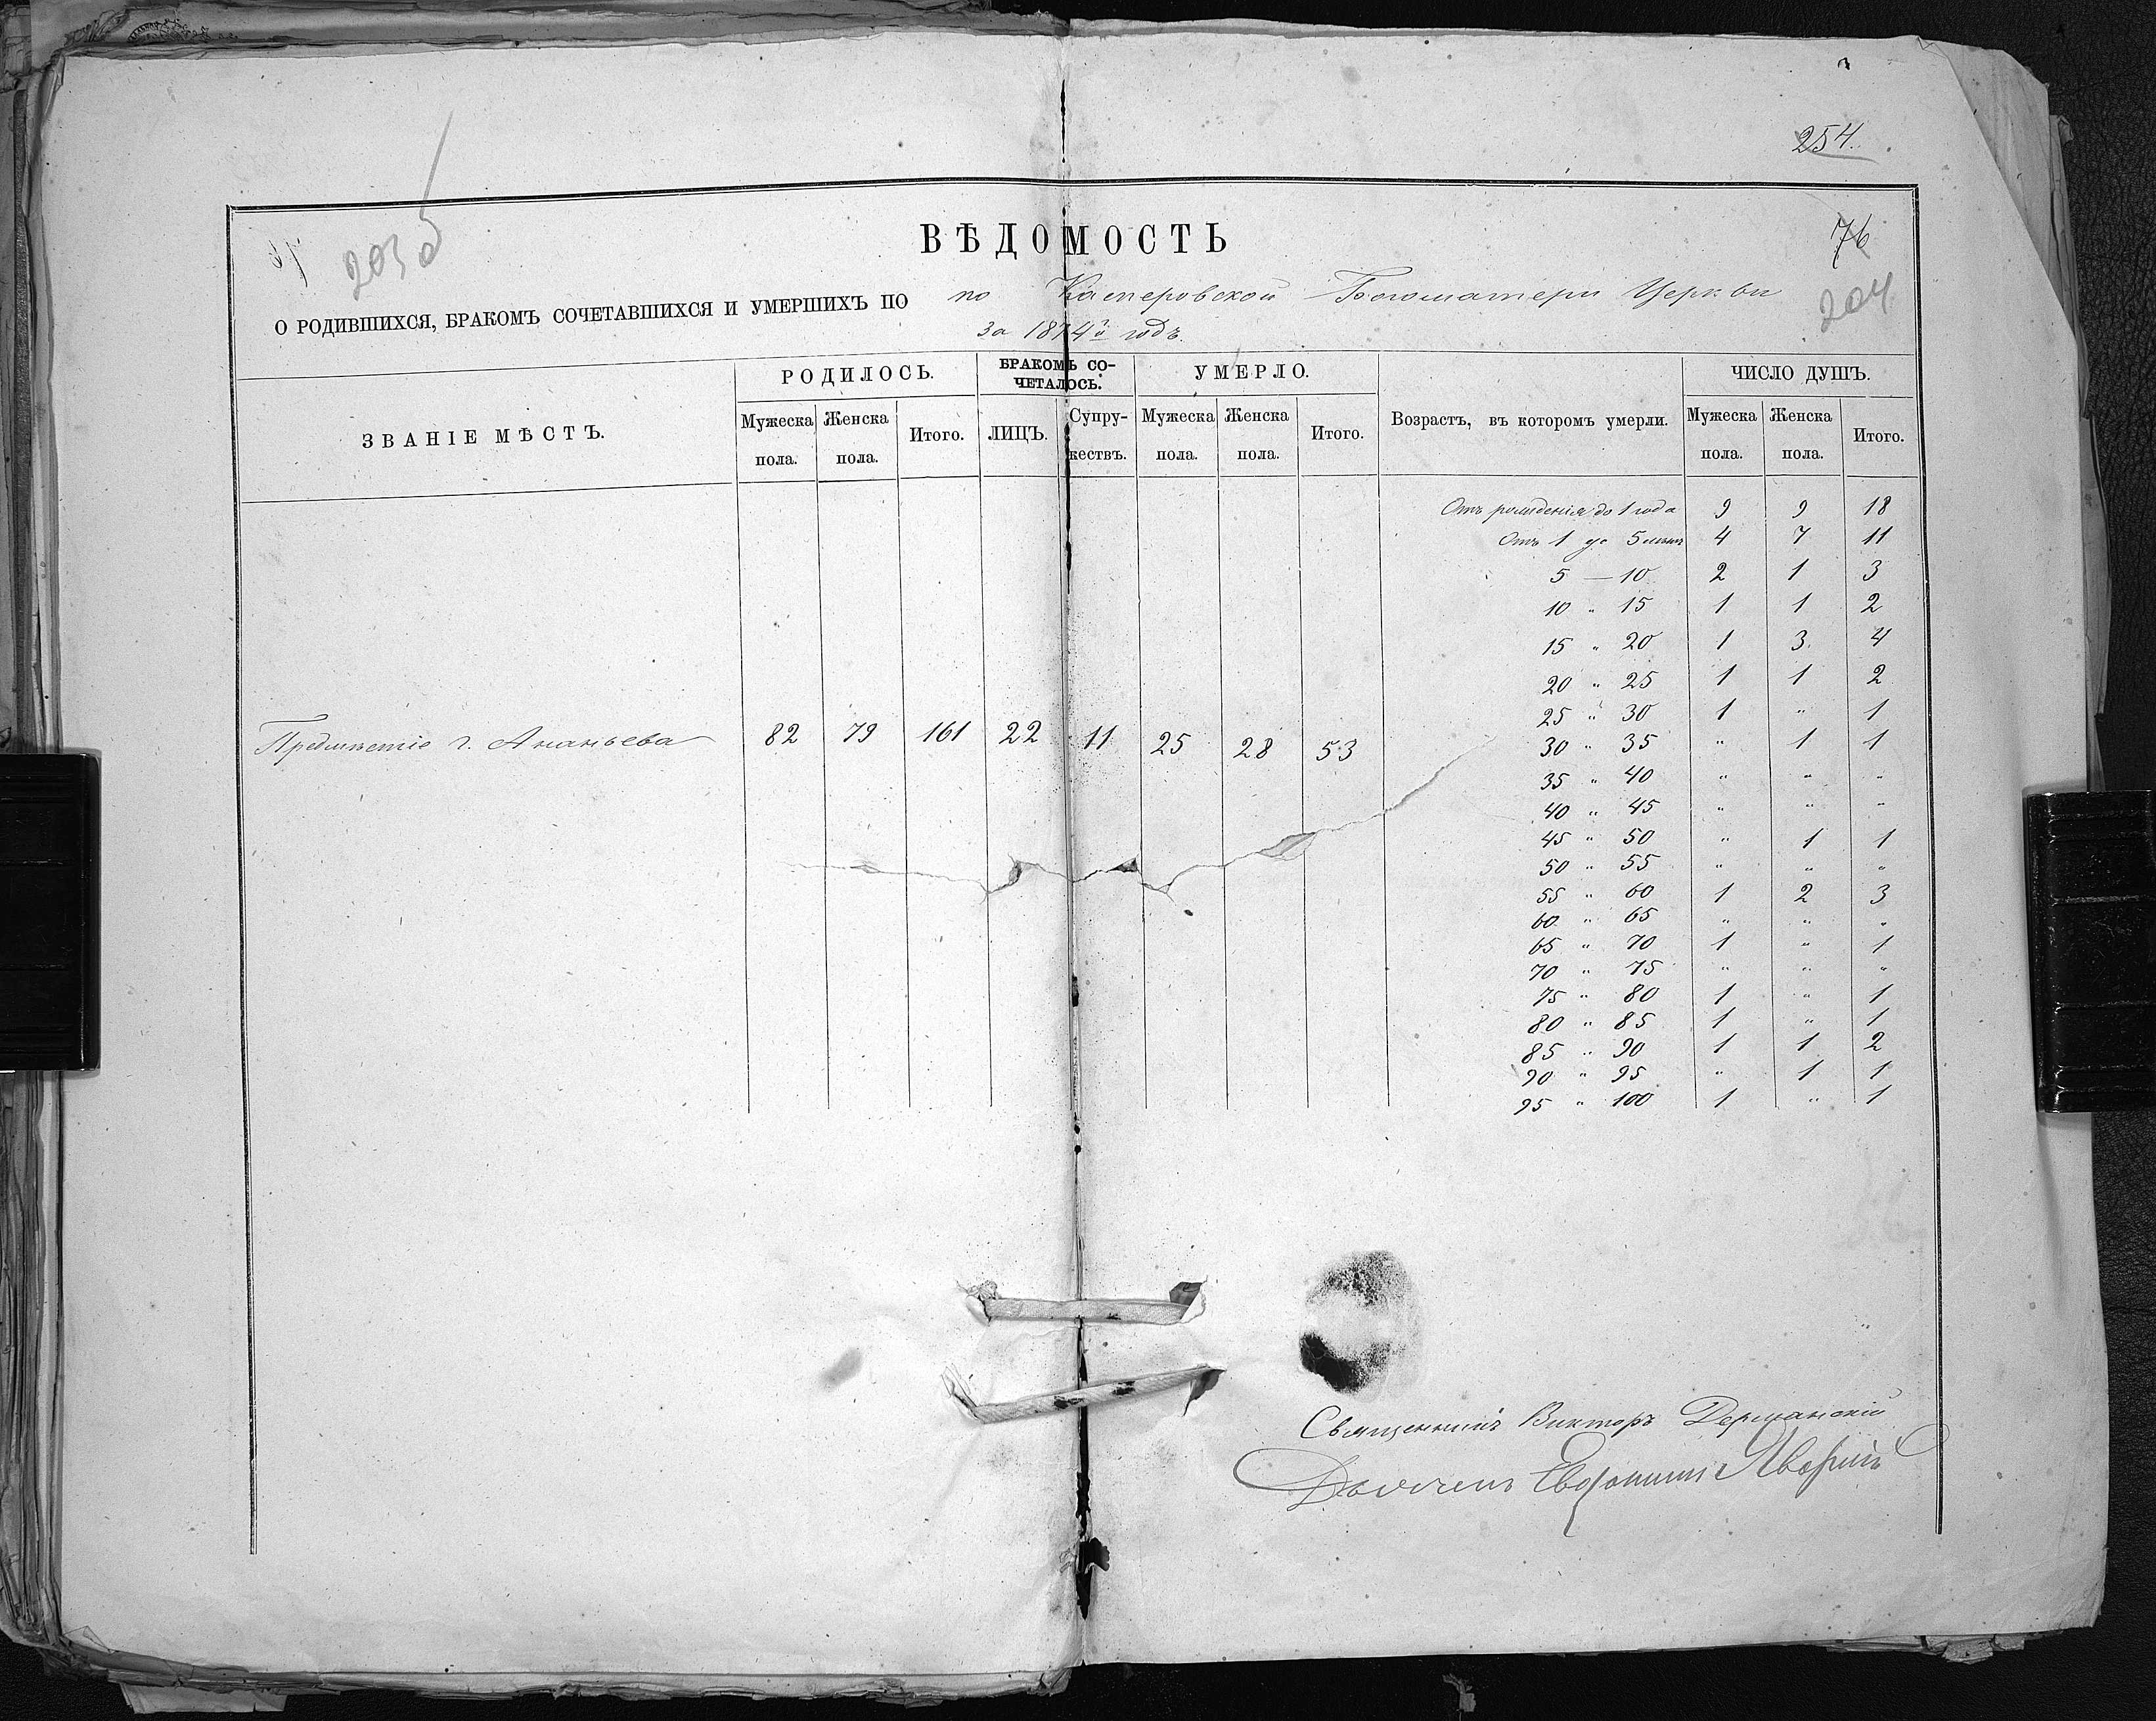 254.
ВѢДОМОСТЬ
76
203 об
204
О РОДИВШИХСЯ, БРАКОМЪ СОЧЕТАВШИХСЯ И УМЕРШИХЪ ПО по Касперовской Богоматери Церкви
за 1874й годъ.
ЗВАНІЕ МѢСТЪ. РОДИЛОСЬ. БРАКОМЪ СОЧЕТАЛОСЬ. УМЕРЛО. Возрастъ, въ которомъ умерли. ЧИСЛО ДУШЪ.
Мужеска пола. Женска пола. Итого. ЛИЦЪ. Супружествъ. Мужеска пола. Женска пола. Итого. Мужеска пола. Женска пола. Итого.
Отъ рожденія до 1 года 9 9 18
Отъ 1 до 5 лѣтъ 4 7 11
5 — 10 2 1 3
10 " 15 1 1 2
15 " 20 1 3. 4
20 " 25 1 1 2
25 " 30 1 " 1
Предмѣстіе г. Ананьева 82 79 161 22 11 25 28 53
30 " 35 " 1 1
35 " 40 " " "
40 " 45 " " "
45 " 50 " 1 1
50 " 55 " " "
55 " 60 1 2 3
60 " 65 " " "
65 " 70 1 " 1
70 " 75 " " "
75 " 80 1 " 1
80 " 85 1 " 1
85 " 90 1 1 2
90 " 95 " 1 1
95 " 100 1 " 1
Священникъ Викторъ Держанскій